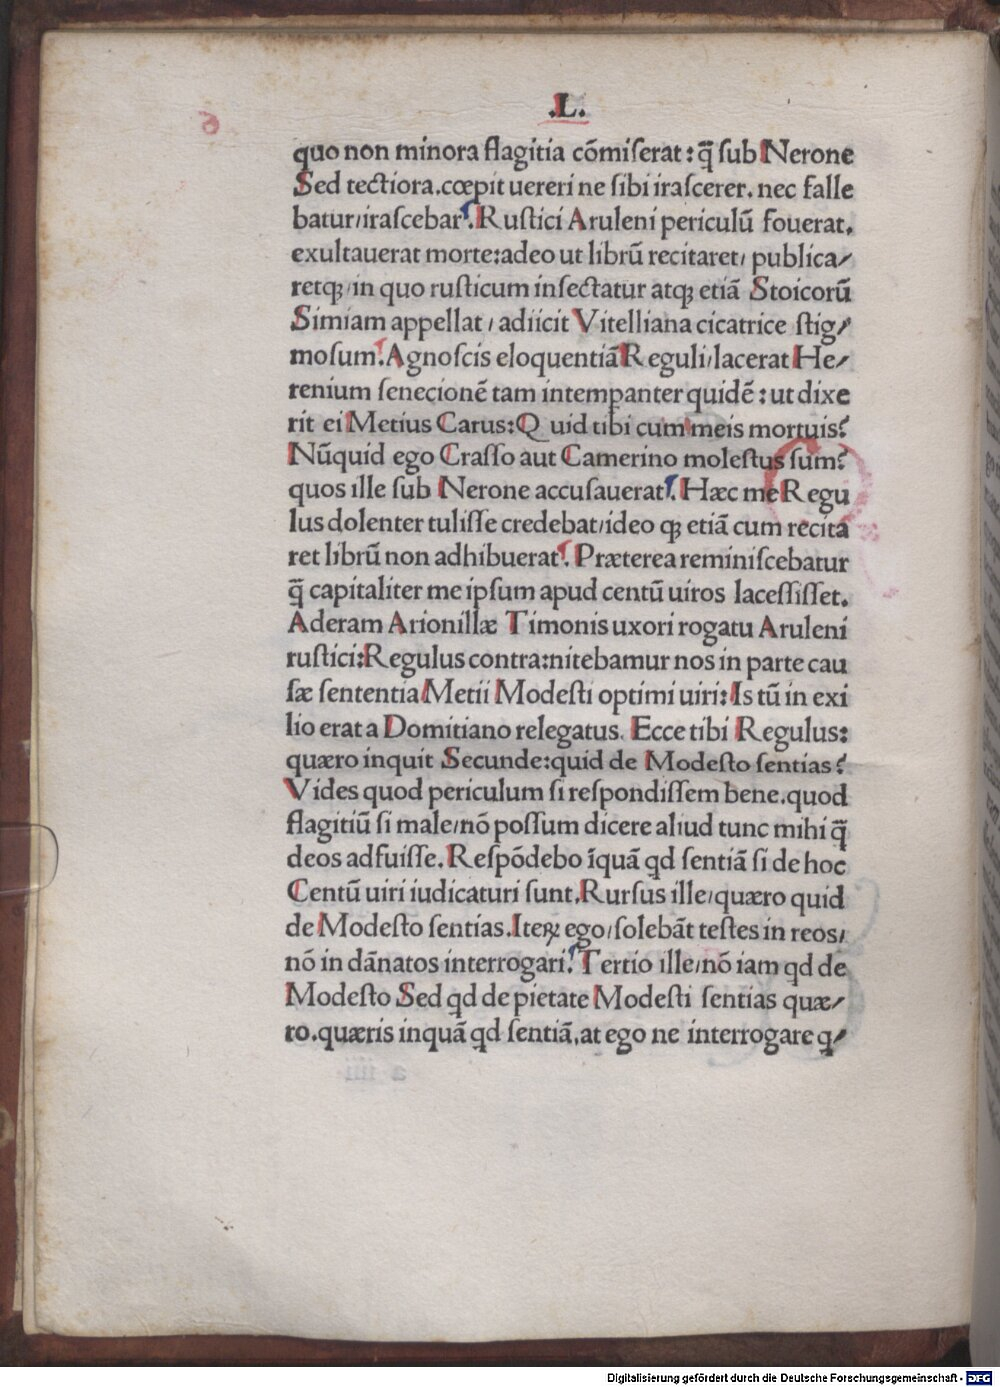 .L.
6
quo non minora flagitia cōmiserat: q̄ sub Nerone
Sed tectiora. cœpit uereri ne sibi irascerer. nec falle
batur/irascebar. Rustici Aruleni periculū fouerat.
exultauerat morte:adeo ut librū recitaret/ publica/
retqꝫ/in quo rusticum insectatur atqꝫ etiā Stoicorū
Simiam appellat/adiicit Vitelliana cicatrice stig/
mosum. Agnoscis eloquentiā Reguli/lacerat He/
renium senecionē tam intempanter quidē: ut dixe
rit ei Metius Carus: Q uid tibi cum meis mortuis?
Nūquid ego Crasso aut Camerino molestus sum?
quos ille sub Nerone accusauerat. Hæc me Regu
lus dolenter tulisse credebat/ideo qꝫ etiā cum recita
ret librū non adhibuerat. Præterea reminiscebatur
q̄ capitaliter me ipsum apud centū uiros lacessisset.
Aderam Arionillæ Timonis uxori rogatu Aruleni
rustici:Regulus contra:nitebamur nos in parte cau
sæ sententia Metii Modesti optimi uiri: Is tū in exi
lio erat a Domitiano relegatus. Ecce tibi Regulus:
quæro inquit Secunde:quid de Modesto sentias?
Vides quod periculum si respondissem bene.quod
flagitiū si male/nō possum dicere aliud tunc mihi q̄
deos adfuisse. Respōdebo īquā qd sentiā si de hoc
Centū uiri iudicaturi sunt. Rursus ille/quæro quid
de Modesto sentias. Iteꝝ ego/solebāt testes in reos/
nō in dānatos interrogari. Tertio ille/nō iam qd de
Modesto Sed qd de pietate Modesti sentias quæ/
ro.quæris inquā qd sentiā,at ego ne interrogare q/
Digitalisierung gefördert durch die Deutsche Forschungsgemeinschaft - DFG